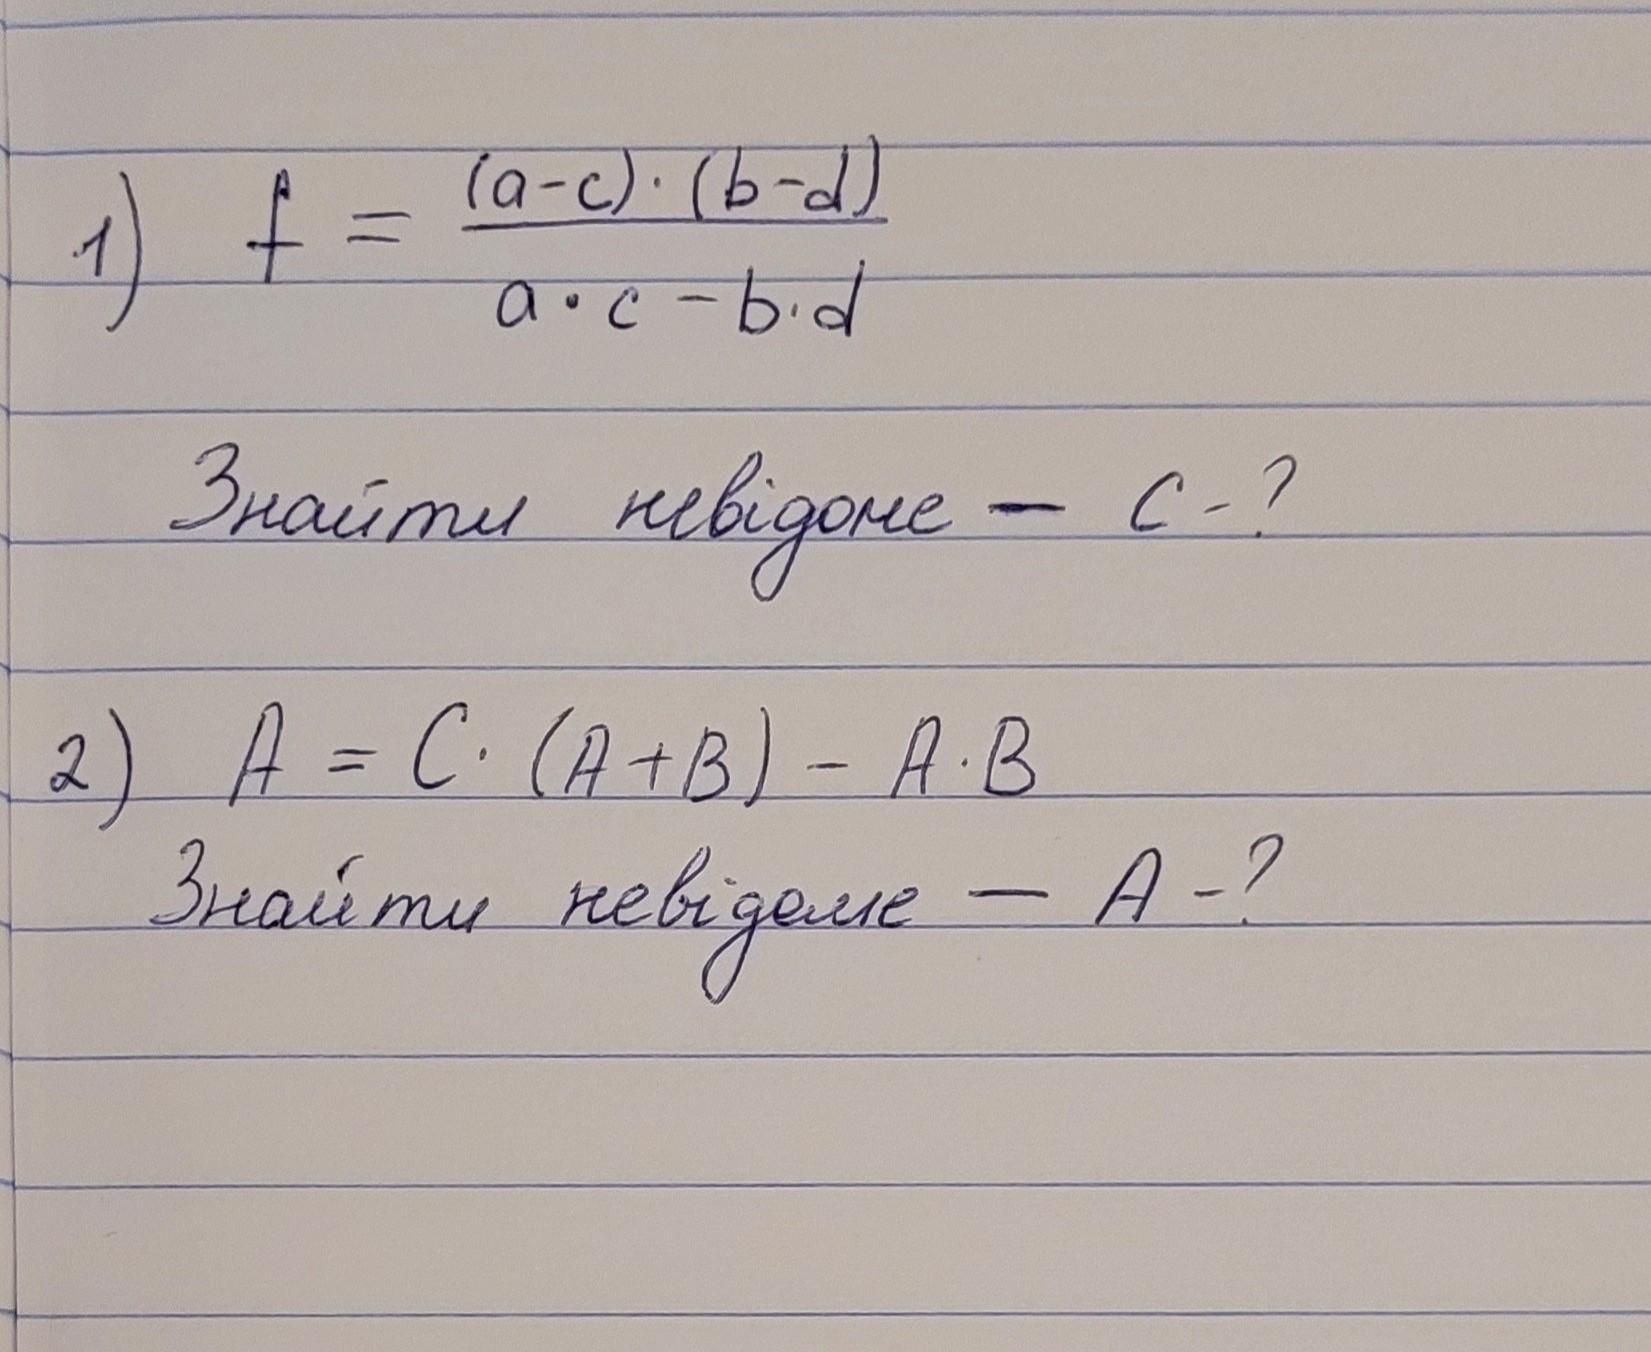 1) f = (a-c)·(b-d) / a·c-b·d
Знайти невідоме — c-?
2) A = C·(A+B) - A·B
Знайти невідоме — A-?